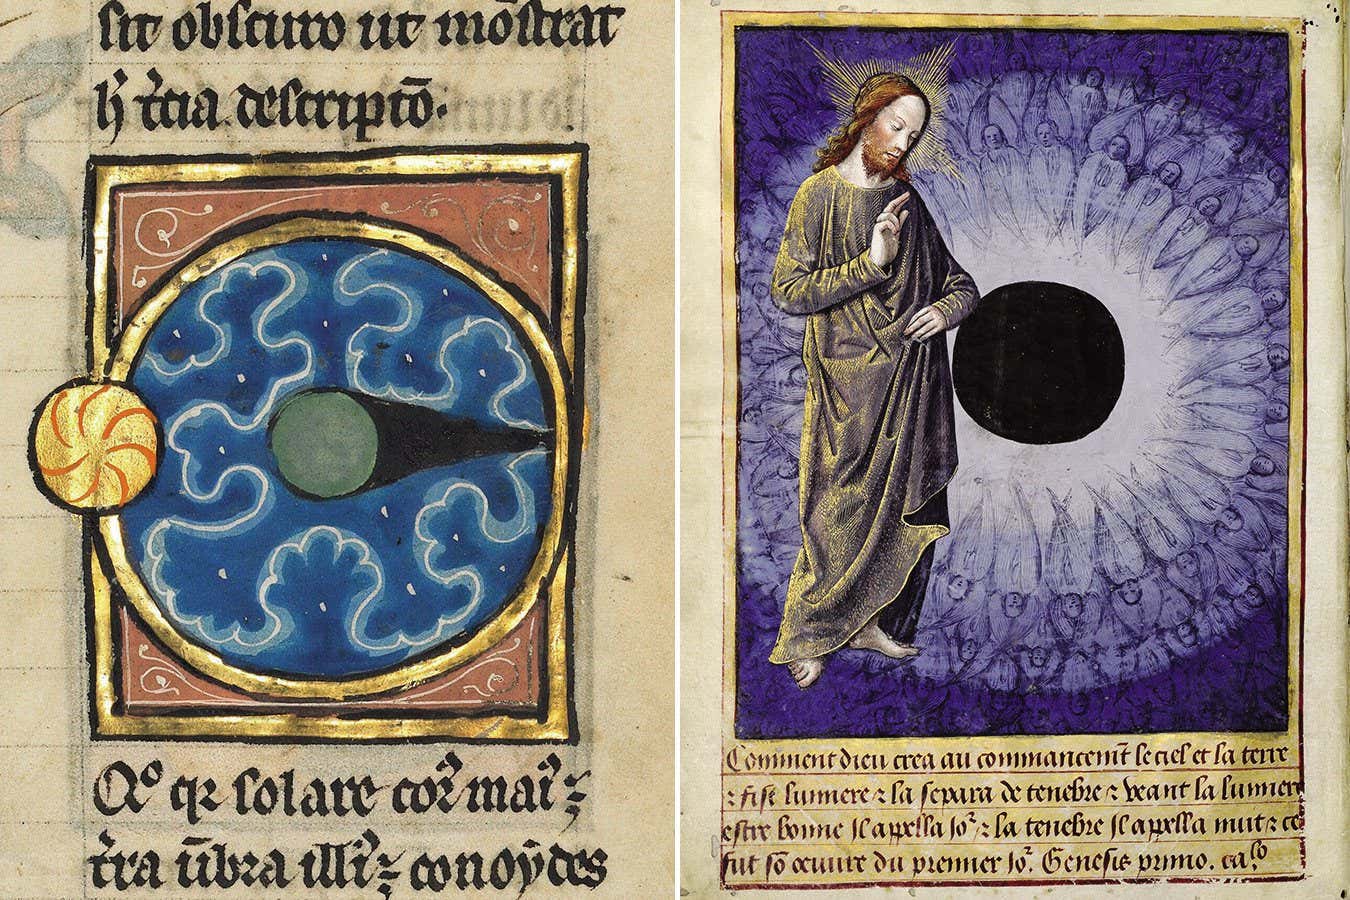 sit obscuro ut mōstrat
t̄cia descriptō.
qr solare cor mai ⁊
t̄ra ūbra illi ⁊ conoydes
Comment dieu crea au commancem̄t le ciel et la terre
⁊ fist lumiere ⁊ la separa de tenebre ⁊ veant la lumiere
estre bonne Il apella Jor ⁊ la tenebre Il apella nuit ⁊ ce
fut sō oeuvre du premier Jor. Genesis primo. ca̅o